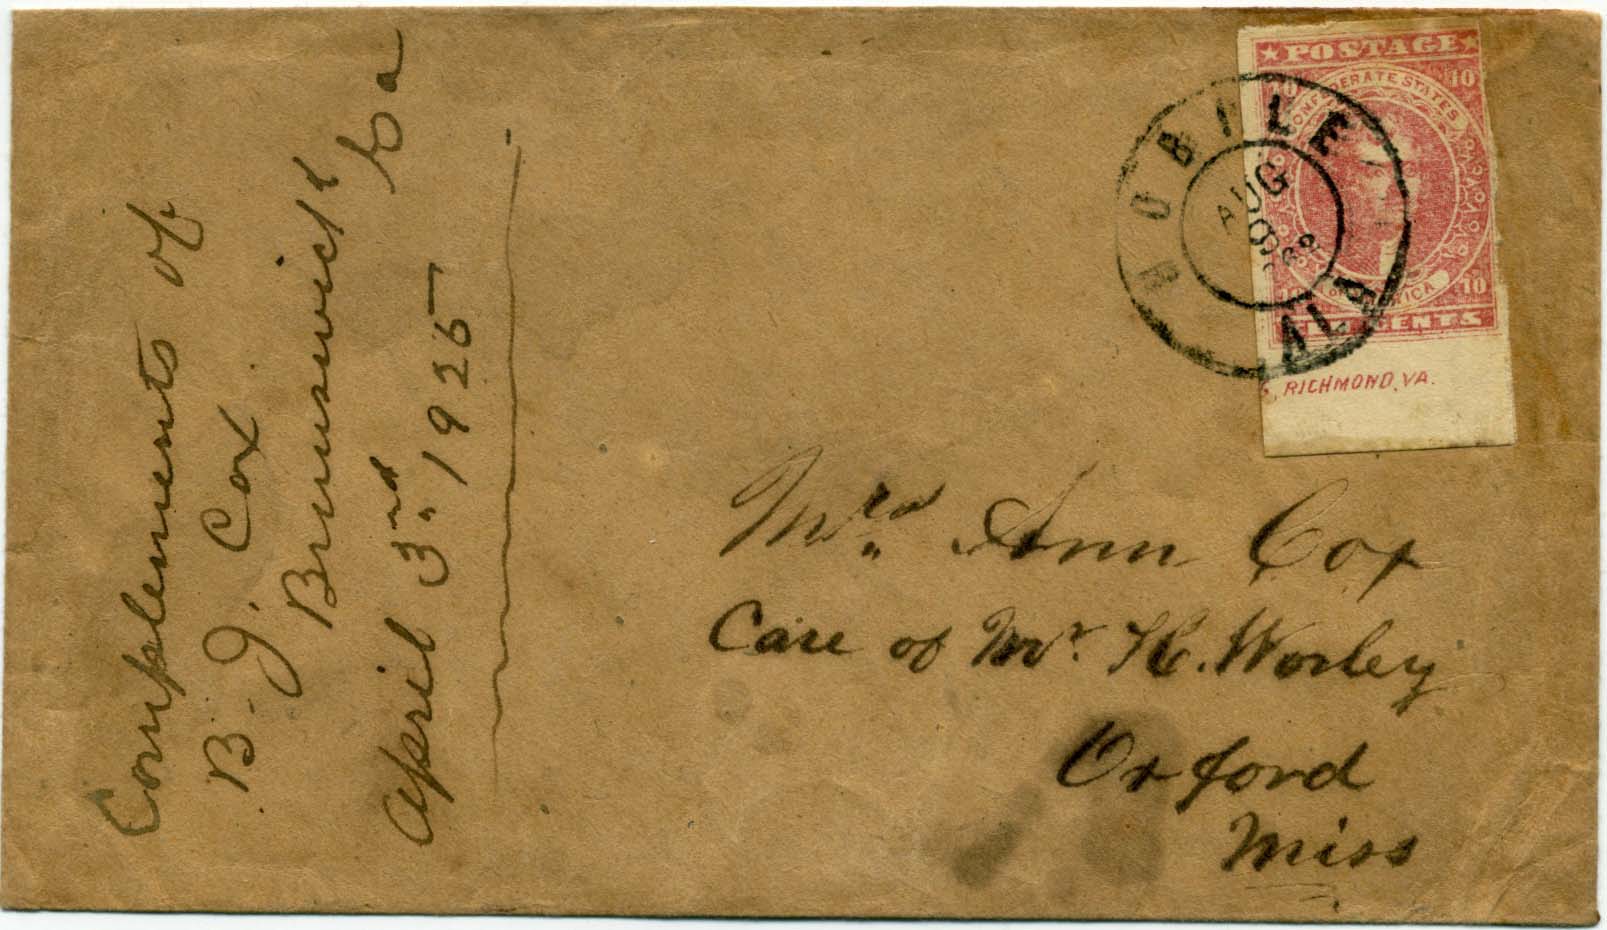 Complements of
B. J. Cox
Brunswick Ga
April 3rd 1925
★ POSTAGE ★
10 10
CONFEDERATE STATES
OF AMERICA
10 10
TEN CENTS
RICHMOND, VA.
MOBILE
AUG
ALA
Mrs. Ann Cox
Care of Mr. H. Worley
Oxford
Miss